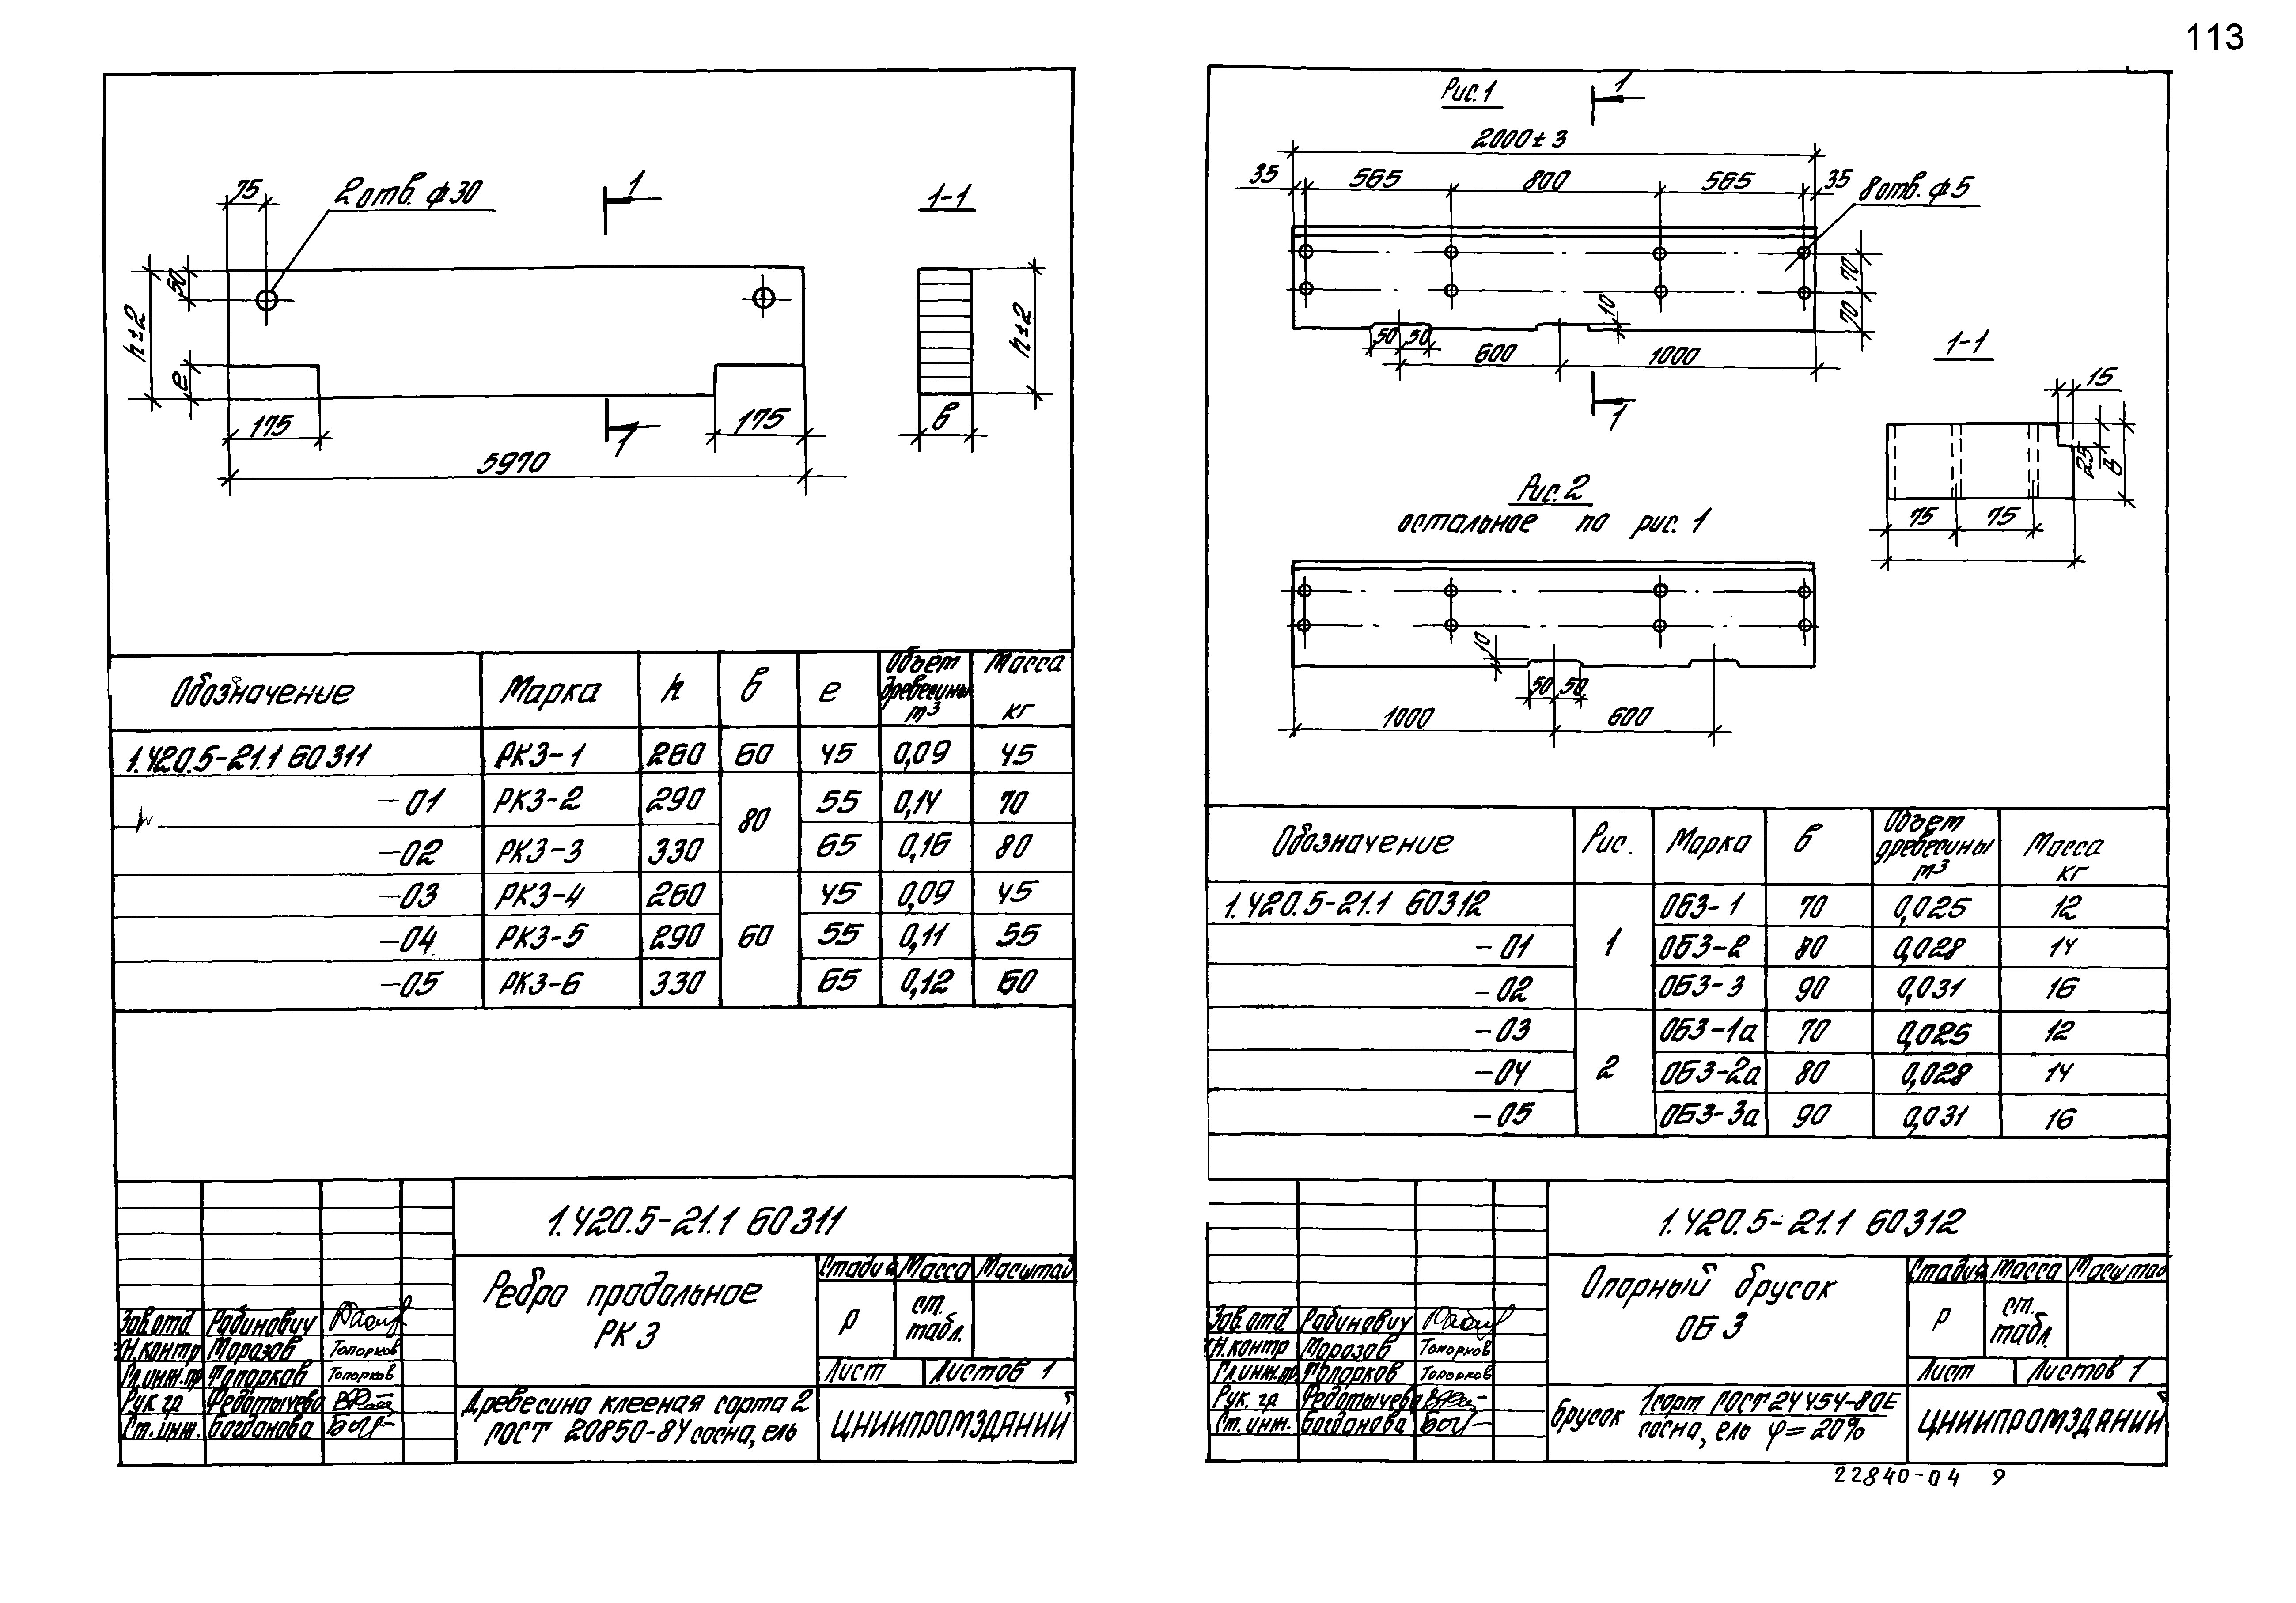 113
75
2 отв. ф30
1
1-1
50
h±2
е
175
175
1
5970
в
h±2
Обозначение Марка h в е Объем древесины m³ Масса кг
1.420.5-21.1 60311 РК3-1 260 60 45 0,09 45
-01 РК3-2 290 80 55 0,14 70
-02 РК3-3 330 65 0,16 80
-03 РК3-4 260 60 45 0,09 45
-04 РК3-5 290 55 0,11 55
-05 РК3-6 330 65 0,12 60
1.420.5-21.1 60311
Ребро продольное
РК 3
Стадия Масса Масштаб
Р ст. табл.
Лист Листов 1
Зав.отд. Рабинович
Н.контр Морозов Топорков
Гл.инж.пр. Топорков Топорков
Рук. гр Федотычева
Ст. инж. Богданова
Древесина клееная сорта 2
ГОСТ 20850-84 сосна, ель
ЦНИИПРОМЗДАНИЙ
Рис. 1
1
2000±3
35 565 800 565 35
8 отв. ф5
70
70
10
50 50
600 1000
1
1-1
15
25
в
75 75
Рис. 2
остальное по рис. 1
10
50 50
1000 600
Обозначение Рис. Марка в Объем древесины m³ Масса кг
1.420.5-21.1 60312 1 ОБ3-1 70 0,025 12
-01 ОБ3-2 80 0,028 14
-02 ОБ3-3 90 0,031 16
-03 2 ОБ3-1а 70 0,025 12
-04 ОБ3-2а 80 0,028 14
-05 ОБ3-3а 90 0,031 16
1.420.5-21.1 60312
Опорный брусок
ОБ 3
Стадия Масса Масштаб
Р ст. табл.
Лист Листов 1
Зав.отд. Рабинович
Н.контр Морозов Топорков
Гл.инж.пр. Топорков Топорков
Рук. гр Федотычева
Ст. инж. Богданова
Брусок 1 сорт ГОСТ 24454-80Е
сосна, ель φ=20%
ЦНИИПРОМЗДАНИЙ
22840-04 9